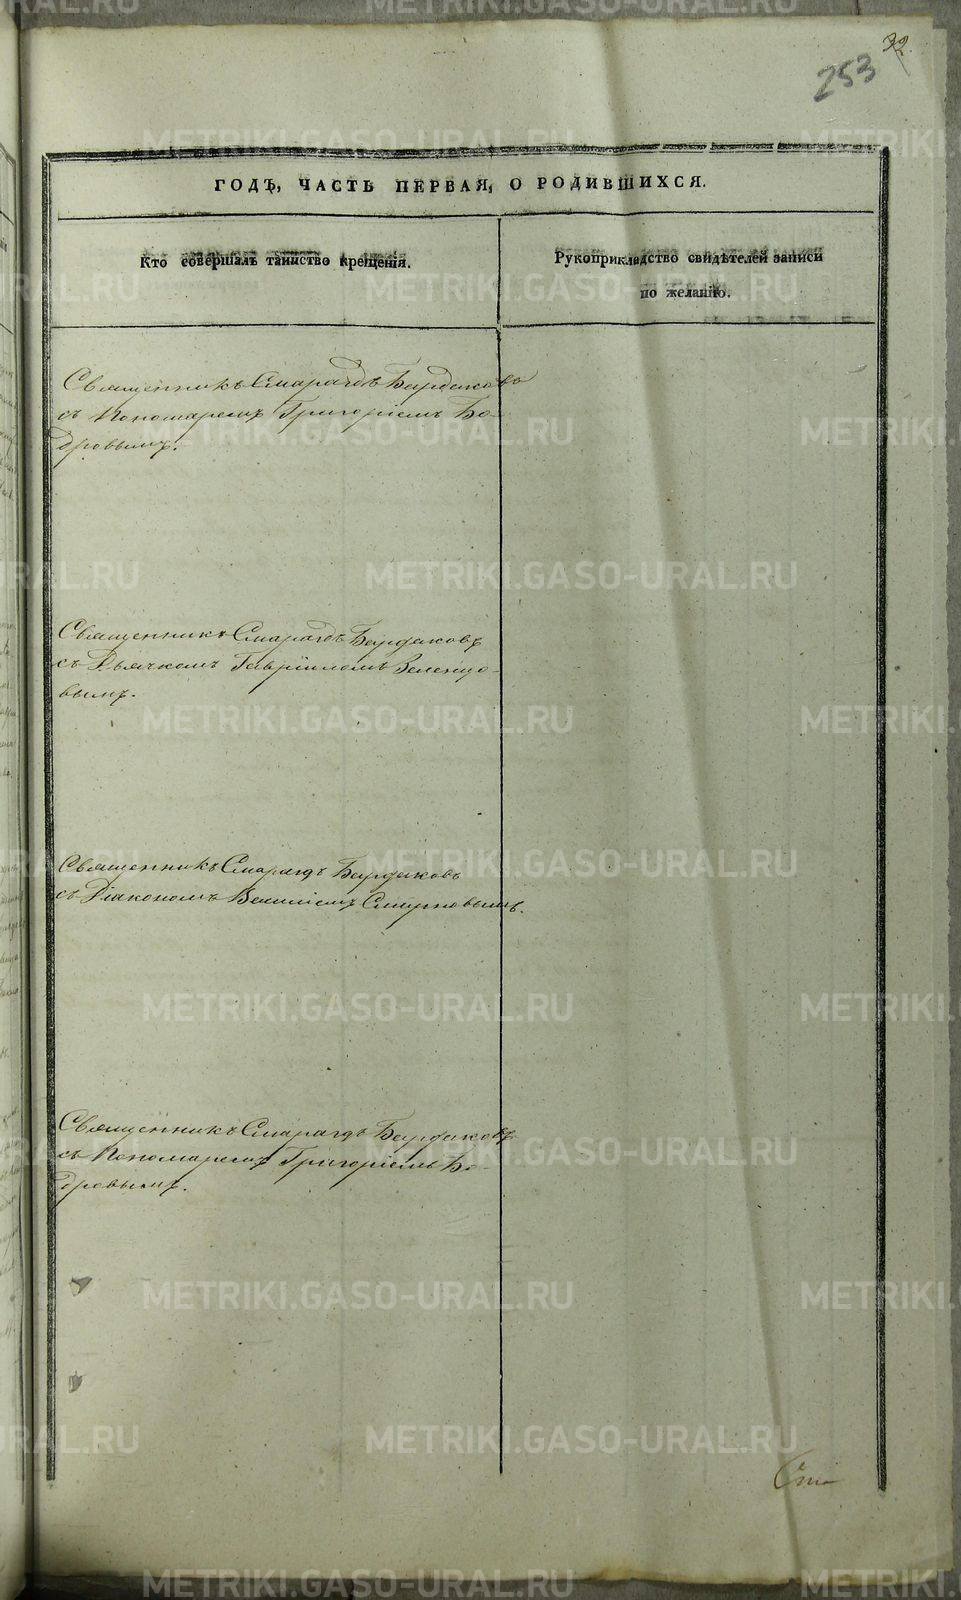 32.
253
ГОДЪ, ЧАСТЬ ПЕРВАЯ, О РОДИВШИХСЯ.
Кто совершалъ таинство крещенія.
Рукоприкладство свидѣтелей записи
по желанію.
Священникъ Смарагдъ Бурдаковъ
съ Пономаремъ Григоріемъ Бо-
дровымъ.
Священникъ Смарагдъ Бурдаковъ
съ Дьячкомъ Гавріиломъ Зеленцо-
вымъ.
Священникъ Смарагдъ Бурдаковъ
съ Діакономъ Василіемъ Смирновымъ.
Священникъ Смарагдъ Бурдаковъ
съ Пономаремъ Григоріемъ Бо-
дровымъ.
METRIKI.GASO-URAL.RU